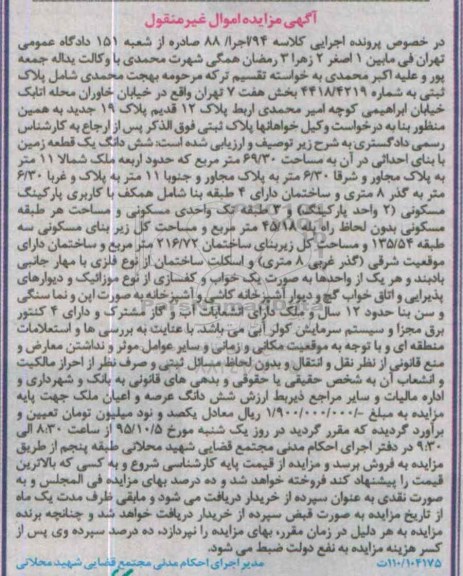 آگهی مزایده اموال غیرمنقول
در خصوص پرونده اجرایی کلاسه ۹۴/اجرا/ ۸۸ صادره از شعبه ۱۵۱ دادگاه عمومی
تهران فی مابین ۱ اصغر ۲ زهرا ۳ رمضان همگی شهرت محمدی با وکالت یداله جمعه
پور و علیه اکبر محمدی به خواسته تقسیم ترکه مرحومه بهجت محمدی شامل پلاک
ثبتی به شماره ۴۴۱۸/۴۲۱۹ بخش هفت ۷ تهران واقع در خیابان خاوران محله اتابک
خیابان ابراهیمی کوچه امیر محمدی اربط پلاک ۱۲ قدیم پلاک ۱۹ جدید به همین
منظور بنا به درخواست وکیل خواهانها پلاک ثبتی فوق الذکر پس از ارجاع به کارشناس
رسمی دادگستری به شرح زیر توصیف و ارزیابی شده است: شش دانگ یک قطعه زمین
با بنای احداثی در آن به مساحت ۶۹/۳۰ متر مربع که حدود اربعه ملک شمالا ۱۱ متر
به پلاک مجاور و شرقا ۶/۳۰ متر به پلاک مجاور و جنوبا ۱۱ متر به پلاک و غربا ۶/۳۰
متر به گذر ۸ متری و ساختمان دارای ۴ طبقه بنا شامل همکف با کاربری پارکینگ
مسکونی (۲ واحد پارکینگ) و ۳ طبقه تک واحدی مسکونی و مساحت هر طبقه
مسکونی بدون لحاظ راه پله ۴۵/۱۸ متر مربع و مساحت کل زیر بنای مسکونی سه
طبقه ۱۳۵/۵۴ و مساحت کل زیربنای ساختمان ۲۱۶/۷۲ متر مربع و ساختمان دارای
موقعیت شرقی (گذر غربی ۸ متری) و اسکلت ساختمان از نوع فلزی با مهار جانبی
بادبند و هر یک از واحدها به صورت یک خواب و کفسازی از نوع موزائیک و دیوارهای
پذیرایی و اتاق خواب گچ و دیوار آشپزخانه کاشی و آشپزخانه به صورت اپن و نما سنگی
و سن بنا حدود ۱۲ سال و ملک دارای انشعابات آب و گاز مشترک و دارای ۴ کنتور
برق مجزا و سیستم سرمایش کولر آبی می باشد. با عنایت به بررسی ها و استعلامات
منطقه ای و با توجه به موقعیت مکانی و زمانی و سایر عوامل موثر و نداشتن معارض و
منع قانونی از نظر نقل و انتقال و بدون لحاظ مسائل ثبتی و صرف نظر از احراز مالکیت
و انشعاب آن به شخص حقیقی یا حقوقی و بدهی های قانونی به بانک و شهرداری و
اداره مالیات و سایر مراجع ذیربط ارزش شش دانگ عرصه و اعیان ملک جهت پایه
مزایده به مبلغ -/۱/۹۰۰/۰۰۰/۰۰۰ ریال معادل یکصد و نود میلیون تومان تعیین و
برآورد گردیده که مقرر گردید در روز یک شنبه مورخ ۹۵/۱۰/۵ از ساعت ۸:۳۰ الی
۹:۳۰ در دفتر اجرای احکام مدنی مجتمع قضایی شهید محلاتی طبقه پنجم از طریق
مزایده به فروش برسد و مزایده از قیمت پایه کارشناسی شروع و به کسی که بالاترین
قیمت را پیشنهاد کند فروخته خواهد شد و ده درصد بهای مزایده فی المجلس و به
صورت نقدی به عنوان سپرده از خریدار دریافت می شود و مابقی ظرف مدت یک ماه
از تاریخ مزایده به صورت قبض سپرده از خریدار دریافت خواهد شد و چنانچه برنده
مزایده به هر دلیل در زمان مقرر، بهای مزایده را نپردازد، ده درصد سپرده وی پس از
کسر هزینه مزایده به نفع دولت ضبط می شود.
۱۱۰/۱۰۴۱۷۵ت مدیر اجرای احکام مدنی مجتمع قضایی شهید محلاتی